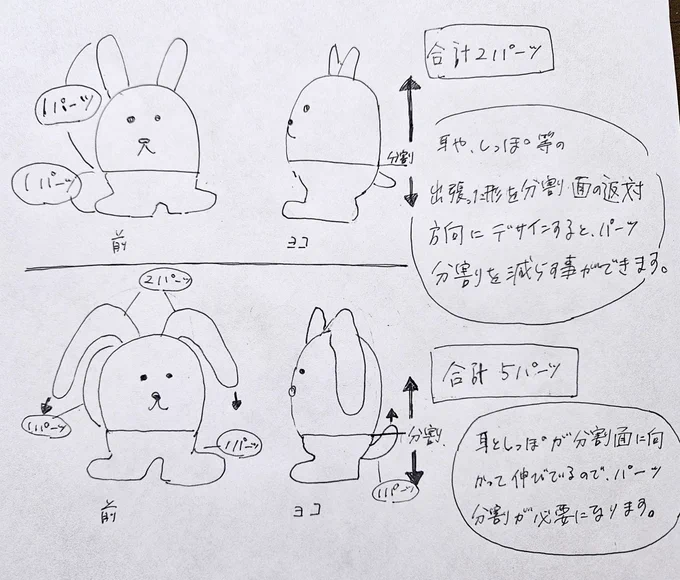 合計2パーツ
1パーツ
1パーツ
分割
前
ヨコ
耳や、しっぽ等の
出張った形を分割面の返対
方向にデザインすると、パーツ
分割りを減らす事ができます。
2パーツ
1パーツ
1パーツ
分割
1パーツ
前
ヨコ
合計5パーツ
耳としっぽが分割面に向
かって伸びでいるので、パーツ
分割が必要になります。